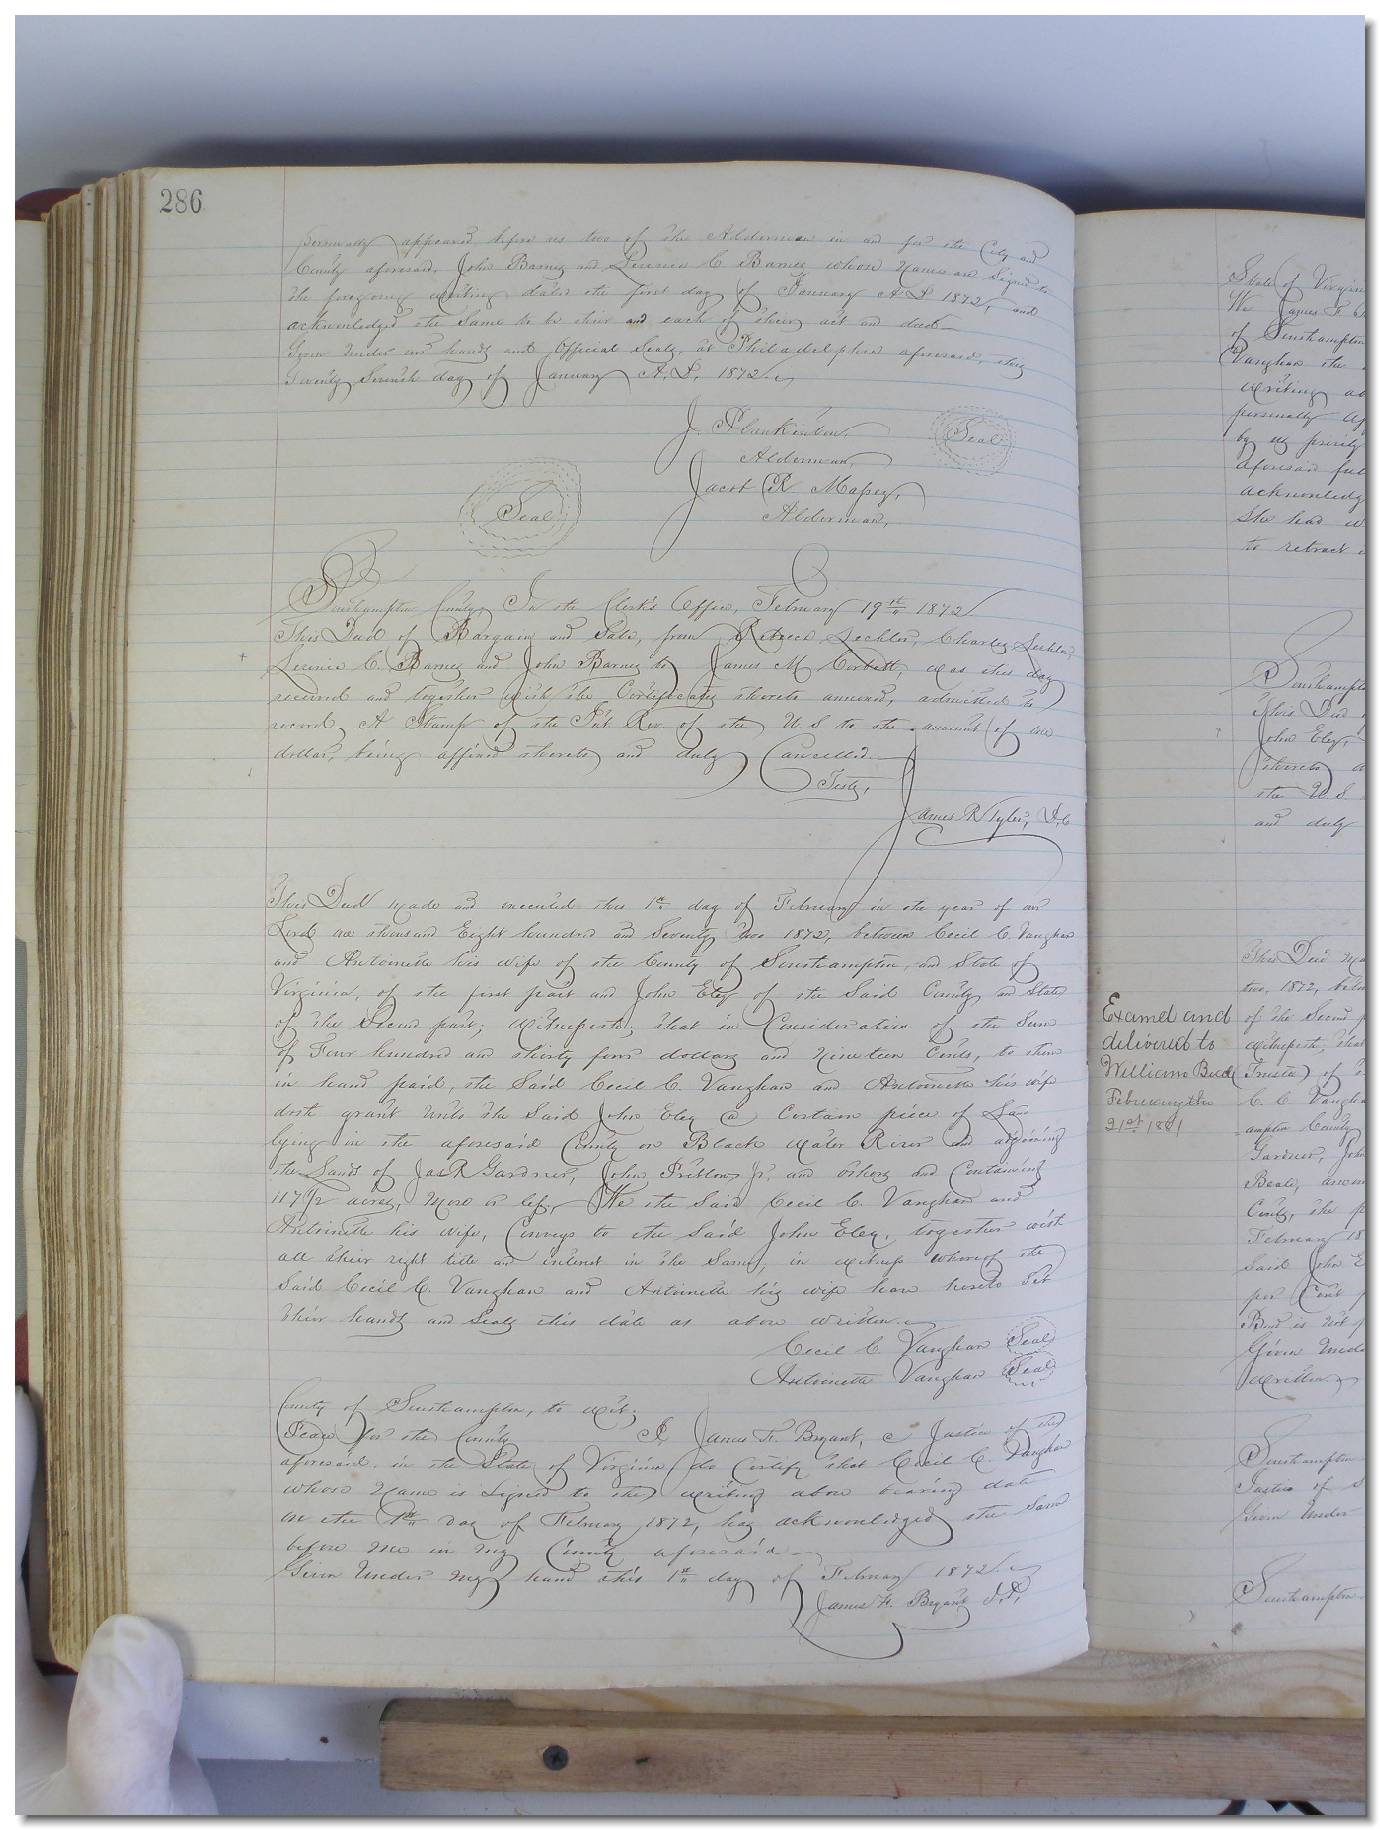 286
personally appeared before us two of the Aldermen in and for the City and
County aforesaid, John Barney and Livinia C Barney whose names are signed to
the foregoing writing dated the first day of January A D 1872, and
acknowledged the same to be their and each of their act and deed
Given under our hands and Official Seals, at Philadelphia aforesaid, this
Twenty Seventh day of January A. D. 1872.
J. Plankinton, Seal
Alderman,
Jacob R Massey,
Seal Alderman,
Southampton County, In the Clerk's Office, February 19th 1872
This Deed of Bargain and Sale, from Rebecca Sechler, Charles Sechler,
C. Barney and John Barney to James M Corbett, was this day
received and together with the Certificates thereto annexed, admitted to
record, A Stamp of the Int Rev. of the U S to the amount of one
dollar, being affixed thereto and duly Cancelled.
Teste,
James R Tyler, D,C
This Deed made and executed this 1st day of February in the year of our
Lord one thousand Eight hundred and Seventy two 1872, between Cecil C. Vaughan
and Antoinette his wife of the County of Southampton, and State of
Virginia, of the first part and John Eley of the Said County and State
of the Second part; Witnesseth; that in Consideration of the Sum
of Four hundred and thirty four dollars and Nineteen Cents, to them
in hand paid, the Said Cecil C. Vaughan and Antoinette his wife
doth grant unto the Said John Eley a Certain piece of Land
lying in the aforesaid County on Black Water River and adjoining
the Lands of Jas R Gardner, John Pretlow Jr. and others and Containing
117 1/2 acres, More or less, We the Said Cecil C. Vaughan and
Antoinette his wife, Conveys to the Said John Eley, together with
all their right title and interest in the Same, in witness whereof the
Said Cecil C. Vaughan and Antoinette his wife have hereto Set
their hands and Seals this date as above written.
Cecil C Vaughan Seal
Antoinette Vaughan Seal
County of Southampton, to wit;
I James F. Bryant, a Justice of the
Peace for the County
aforesaid, in the State of Virginia do Certify that Cecil C. Vaughan
whose Name is Signed to the writing above bearing date
on the 1st Day of February 1872, has acknowledged the Same
before me in my County aforesaid
Given Under my hand this 1st day of February 1872.
James F. Bryant J.P.
State of Virgin
We James F
of Southampton
Vaughan the
writing
personally
by us privily
aforesaid
acknowledg
She had
to retract
Southampto
This Deed
John Eley,
thereto
the U. S.
and duly
Examd and
delivered to
William
February the
21st
This Deed
two, 1872,
of the Second
witnesseth, that
(Trustee) of
C. C. Vaugha
ampton County
Gardner, John
Beale,
Cents, the
February 18
Said John E
per Cent
Bond is not
Given Unde
written
Southampton
Justice of
Given Under
Southampton